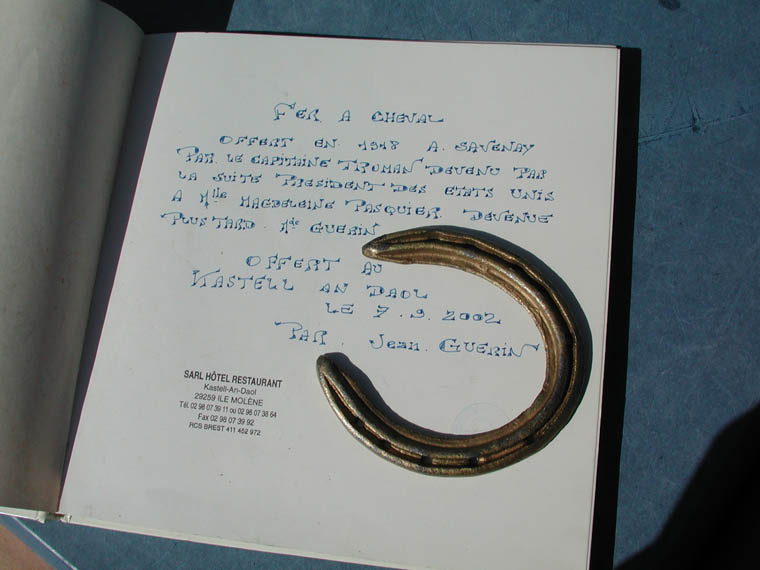 FER A CHEVAL
OFFERT EN 1918 A. SAVENAY
PAR LE CAPITAINE TROMAN DEVENU PAR
LA SUITE PRESIDENT DES ETATS UNIS
A Mlle MAGDELEINE PASQUIER DEVENUE
PLUS TARD. Mde GUERIN
OFFERT AU
KASTELL AN DAOL
LE 7.9.2002
PAR. Jean. GUERIN
SARL HÔTEL RESTAURANT
Kastell-An-Daol
29259 ILE MOLÈNE
Tél. 02 98 07 39 11 ou 02 98 07 38 64
Fax 02 98 07 39 92
RCS BREST 411 452 972